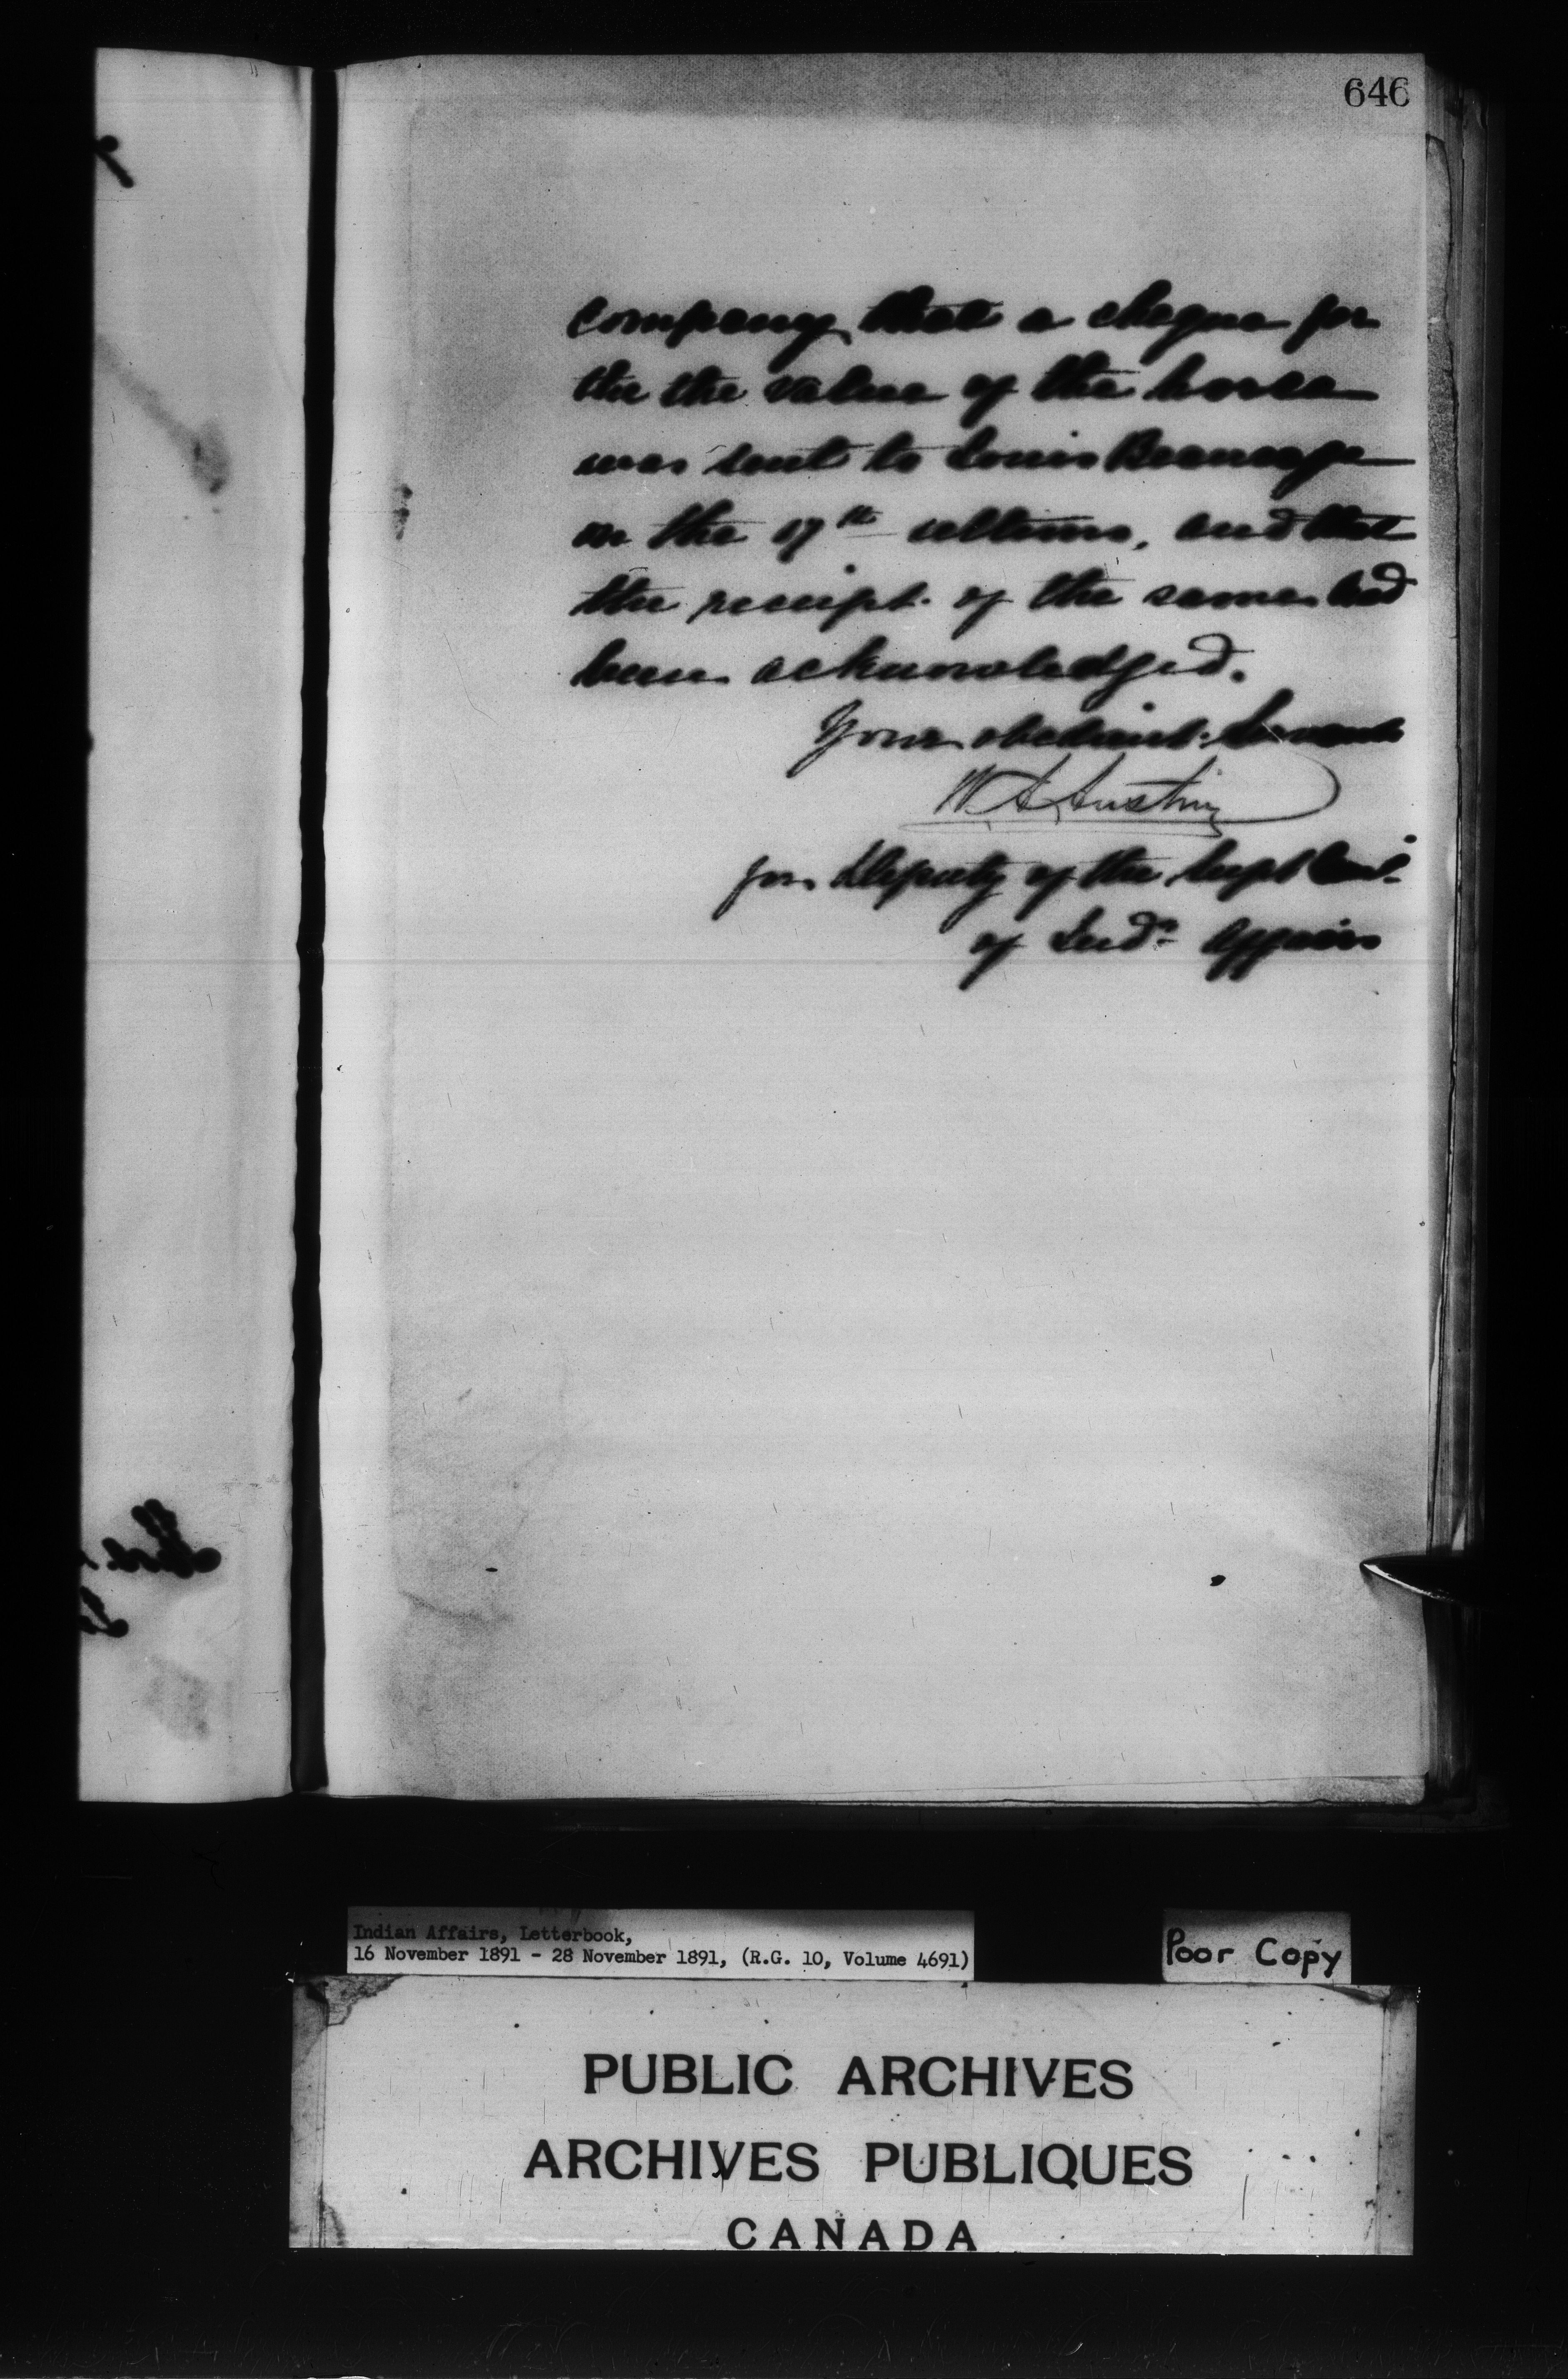 646
company that a cheque for
the the value of the horse
was sent to Louis Beaucage
on the 17th ultimo, and that
the receipt of the same had
been acknowledged.
Your obedient Servant
W.A. Austin
for Deputy of the Supt Genl.
of Indn. Affairs
Indian Affairs, Letterbook,
16 November 1891 - 28 November 1891, (R.G. 10, Volume 4691)
Poor Copy
PUBLIC ARCHIVES
ARCHIVES PUBLIQUES
CANADA